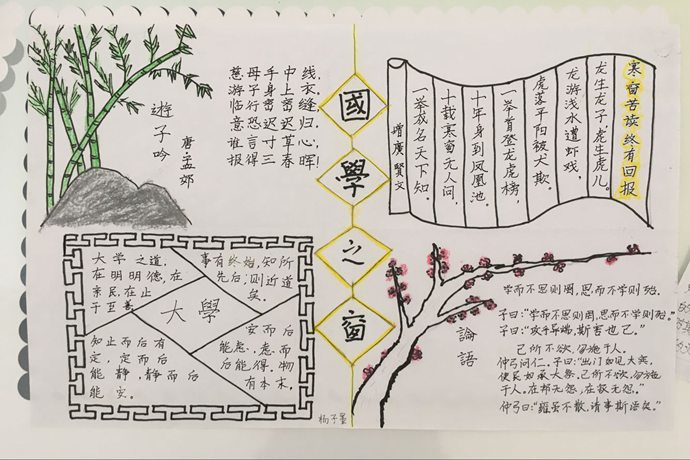 遊子吟
唐孟郊
慈母手中线,
游子身上衣,
临行密密缝,
意恐迟迟归,
谁言寸草心,
报得三春晖!
國學之窗
寒窗苦读终有回报
龙生龙子虎生虎儿。
龙游浅水遭虾戏,
虎落平阳被犬欺。
一举首登龙虎榜
十年身到凤凰池。
十载寒窗无人问,
一举成名天下知。
增廣賢文
大學
大学之道,
在明明德,在
亲民,在止
于至善
知止而后有
定,定而后
能静,静而后
能安。
安而后
能虑,虑而
后能得。物
有本末,
事有终始,知所
先后,则近道
矣。
論語
学而不思则罔,思而不学则殆。
子曰:"学而不思则罔,思而不学则殆。"
子曰:"攻乎异端,斯害也已。"
己所不欲,勿施于人。
仲弓问仁。子曰:"出门如见大宾,
使民如承大祭。己所不欲,勿施
于人。在邦无怨,在家无怨。"
仲弓曰:"雍虽不敏,请事斯语矣。"